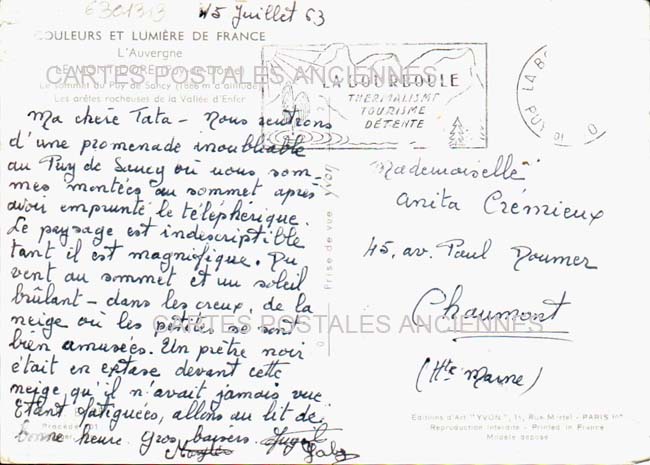 6301313
15 Juillet 63
COULEURS ET LUMIÈRE DE FRANCE
L'Auvergne
LE MONT-DORE (Puy-de-Dôme)
Le sommet du Puy de Sancy (1886 m d'altitude)
Les arêtes rocheuses de la Vallée d'Enfer
CARTES POSTALES ANCIENNES
LA BOURBOULE
THERMALISME
TOURISME
DÉTENTE
LA BO
PUY
Ma chère Tata - Nous rentrons
d'une promenade inoubliable
au Puy de Sancy où nous som-
mes montées au sommet après
avoir emprunté le téléphérique.
Le paysage est indescriptible
tant il est magnifique. Du
vent au sommet et un soleil
brûlant - dans les creux, de la
neige où les petites se sont
bien amusées. Un prêtre noir
était en extase devant cette
neige qu'il n'avait jamais vue
Etant fatiguées, allons au lit de
bonne heure. Gros baisers.
Gaby
Prise de vue Yvon
Mademoiselle
Anita Crémieux
45, av. Paul Doumer
Chaumont
(Hte Marne)
CARTES POSTALES ANCIENNES
Editions d'Art "YVON", 15, Rue Martel - PARIS 10e
Reproduction interdite - Printed in France
Modèle déposé